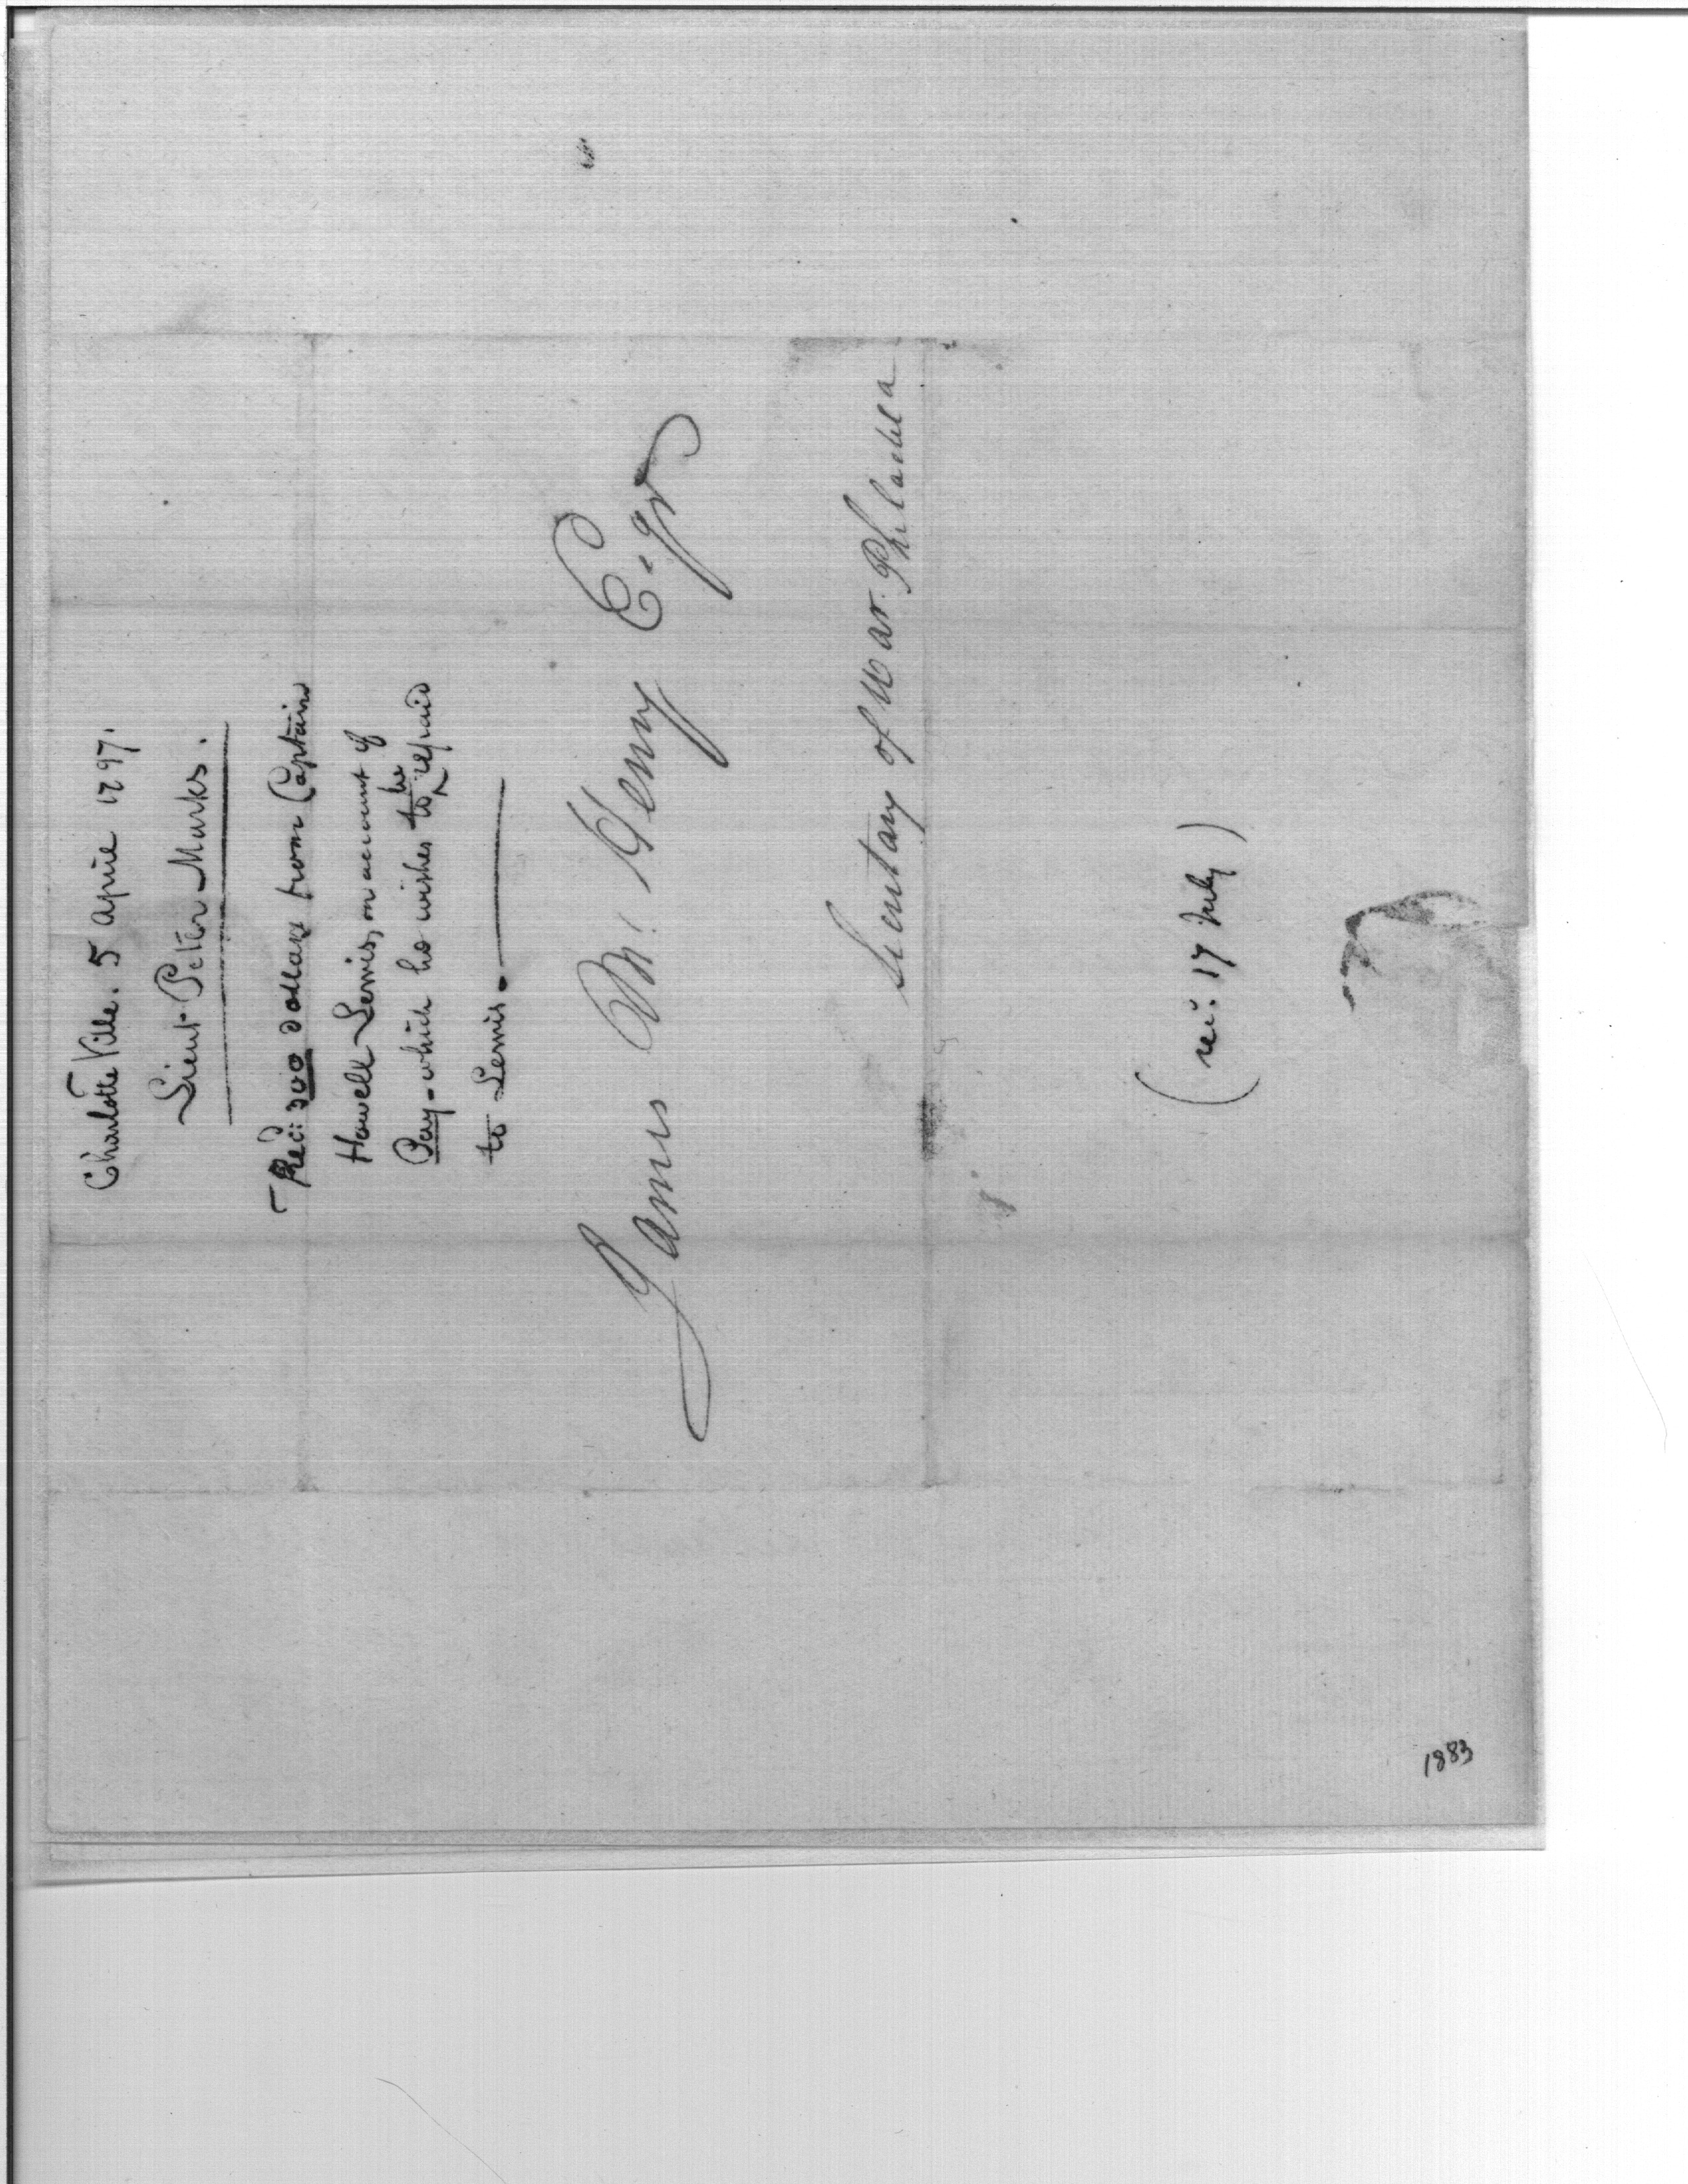 Charlotte Ville. 5 April 1797.
Lieut. Peter Marks.
Rec'd: 300 dollars from Captain
Howell Lewis, on account of
Pay - which he wishes to be repaid
to Lewis.
James Mc. Henry Esqr
Secretary of War. Philadela
(rec: 17 July)
1883